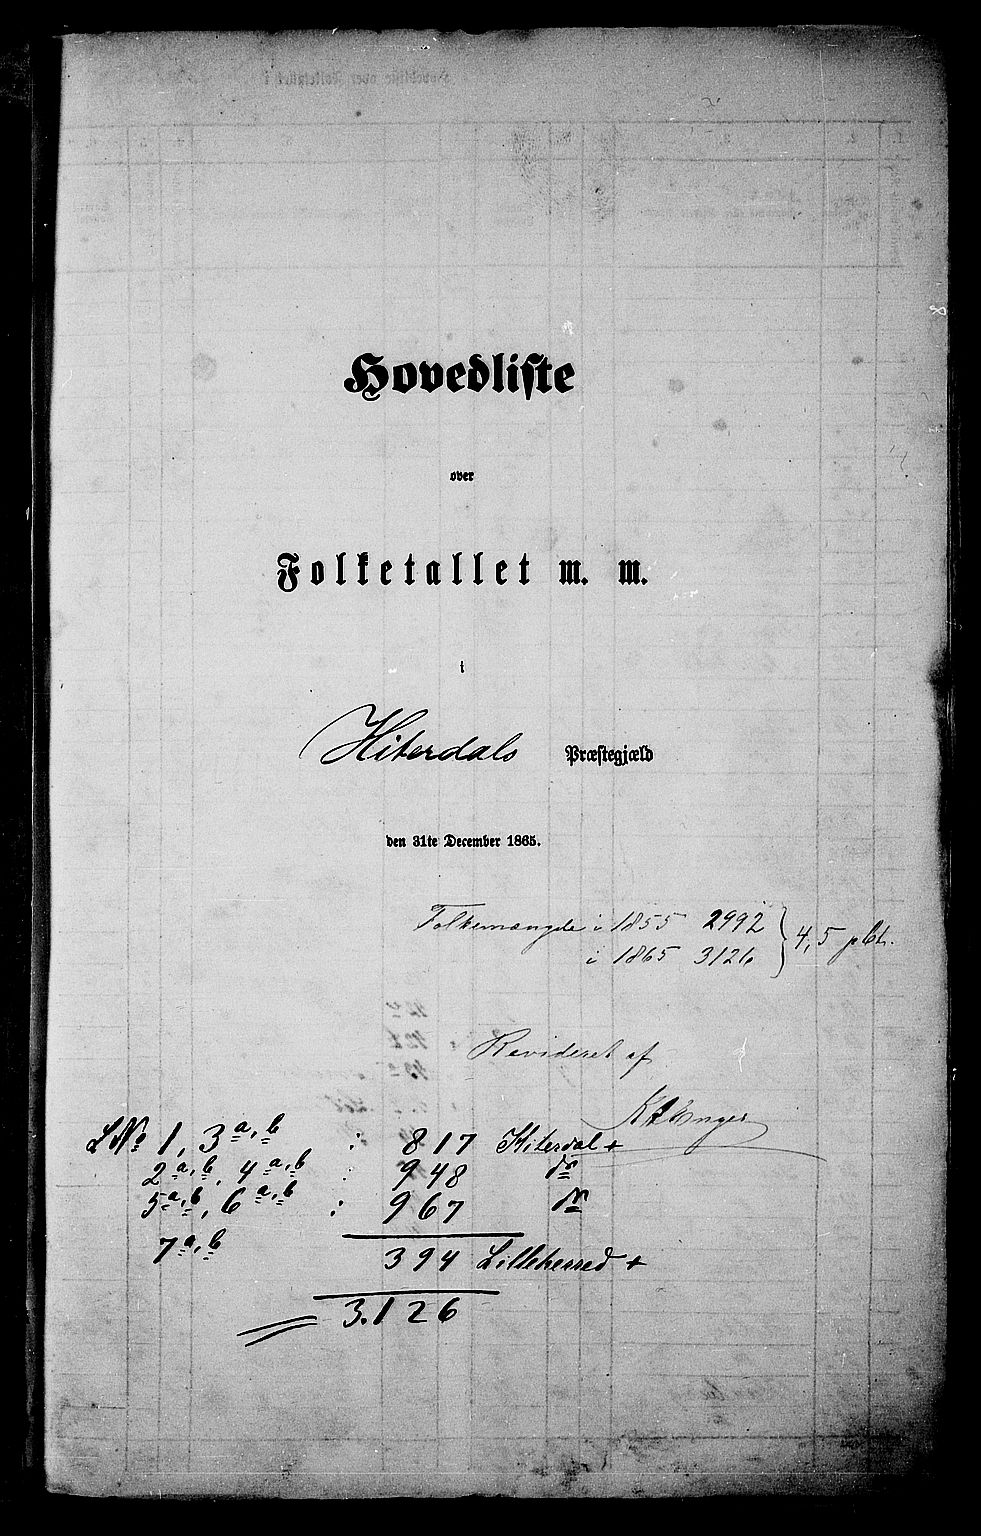 Hovedliste
over
Folketallet m. m.
i
Hiterdals Præstegjæld
den 31te December 1865.
Folkemængde i 1855 2992 } 4,5 pCt.
i 1865 3126
Revideret af
LNo 1, 3a,b : 817 Hiterdal +
2a,b, 4a,b : 948 do
5a,b, 6a,b : 967 do
7a,b 394 Lilleherred +
3.126